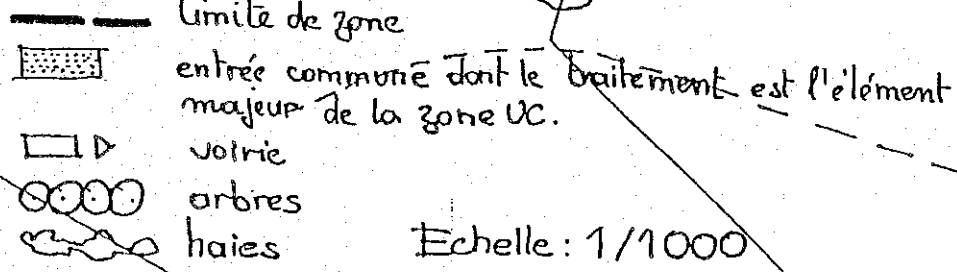 limite de zone
entrée commune dont le traitement est l'élément
majeur de la zone UC.
voirie
arbres
haies Echelle: 1/1000